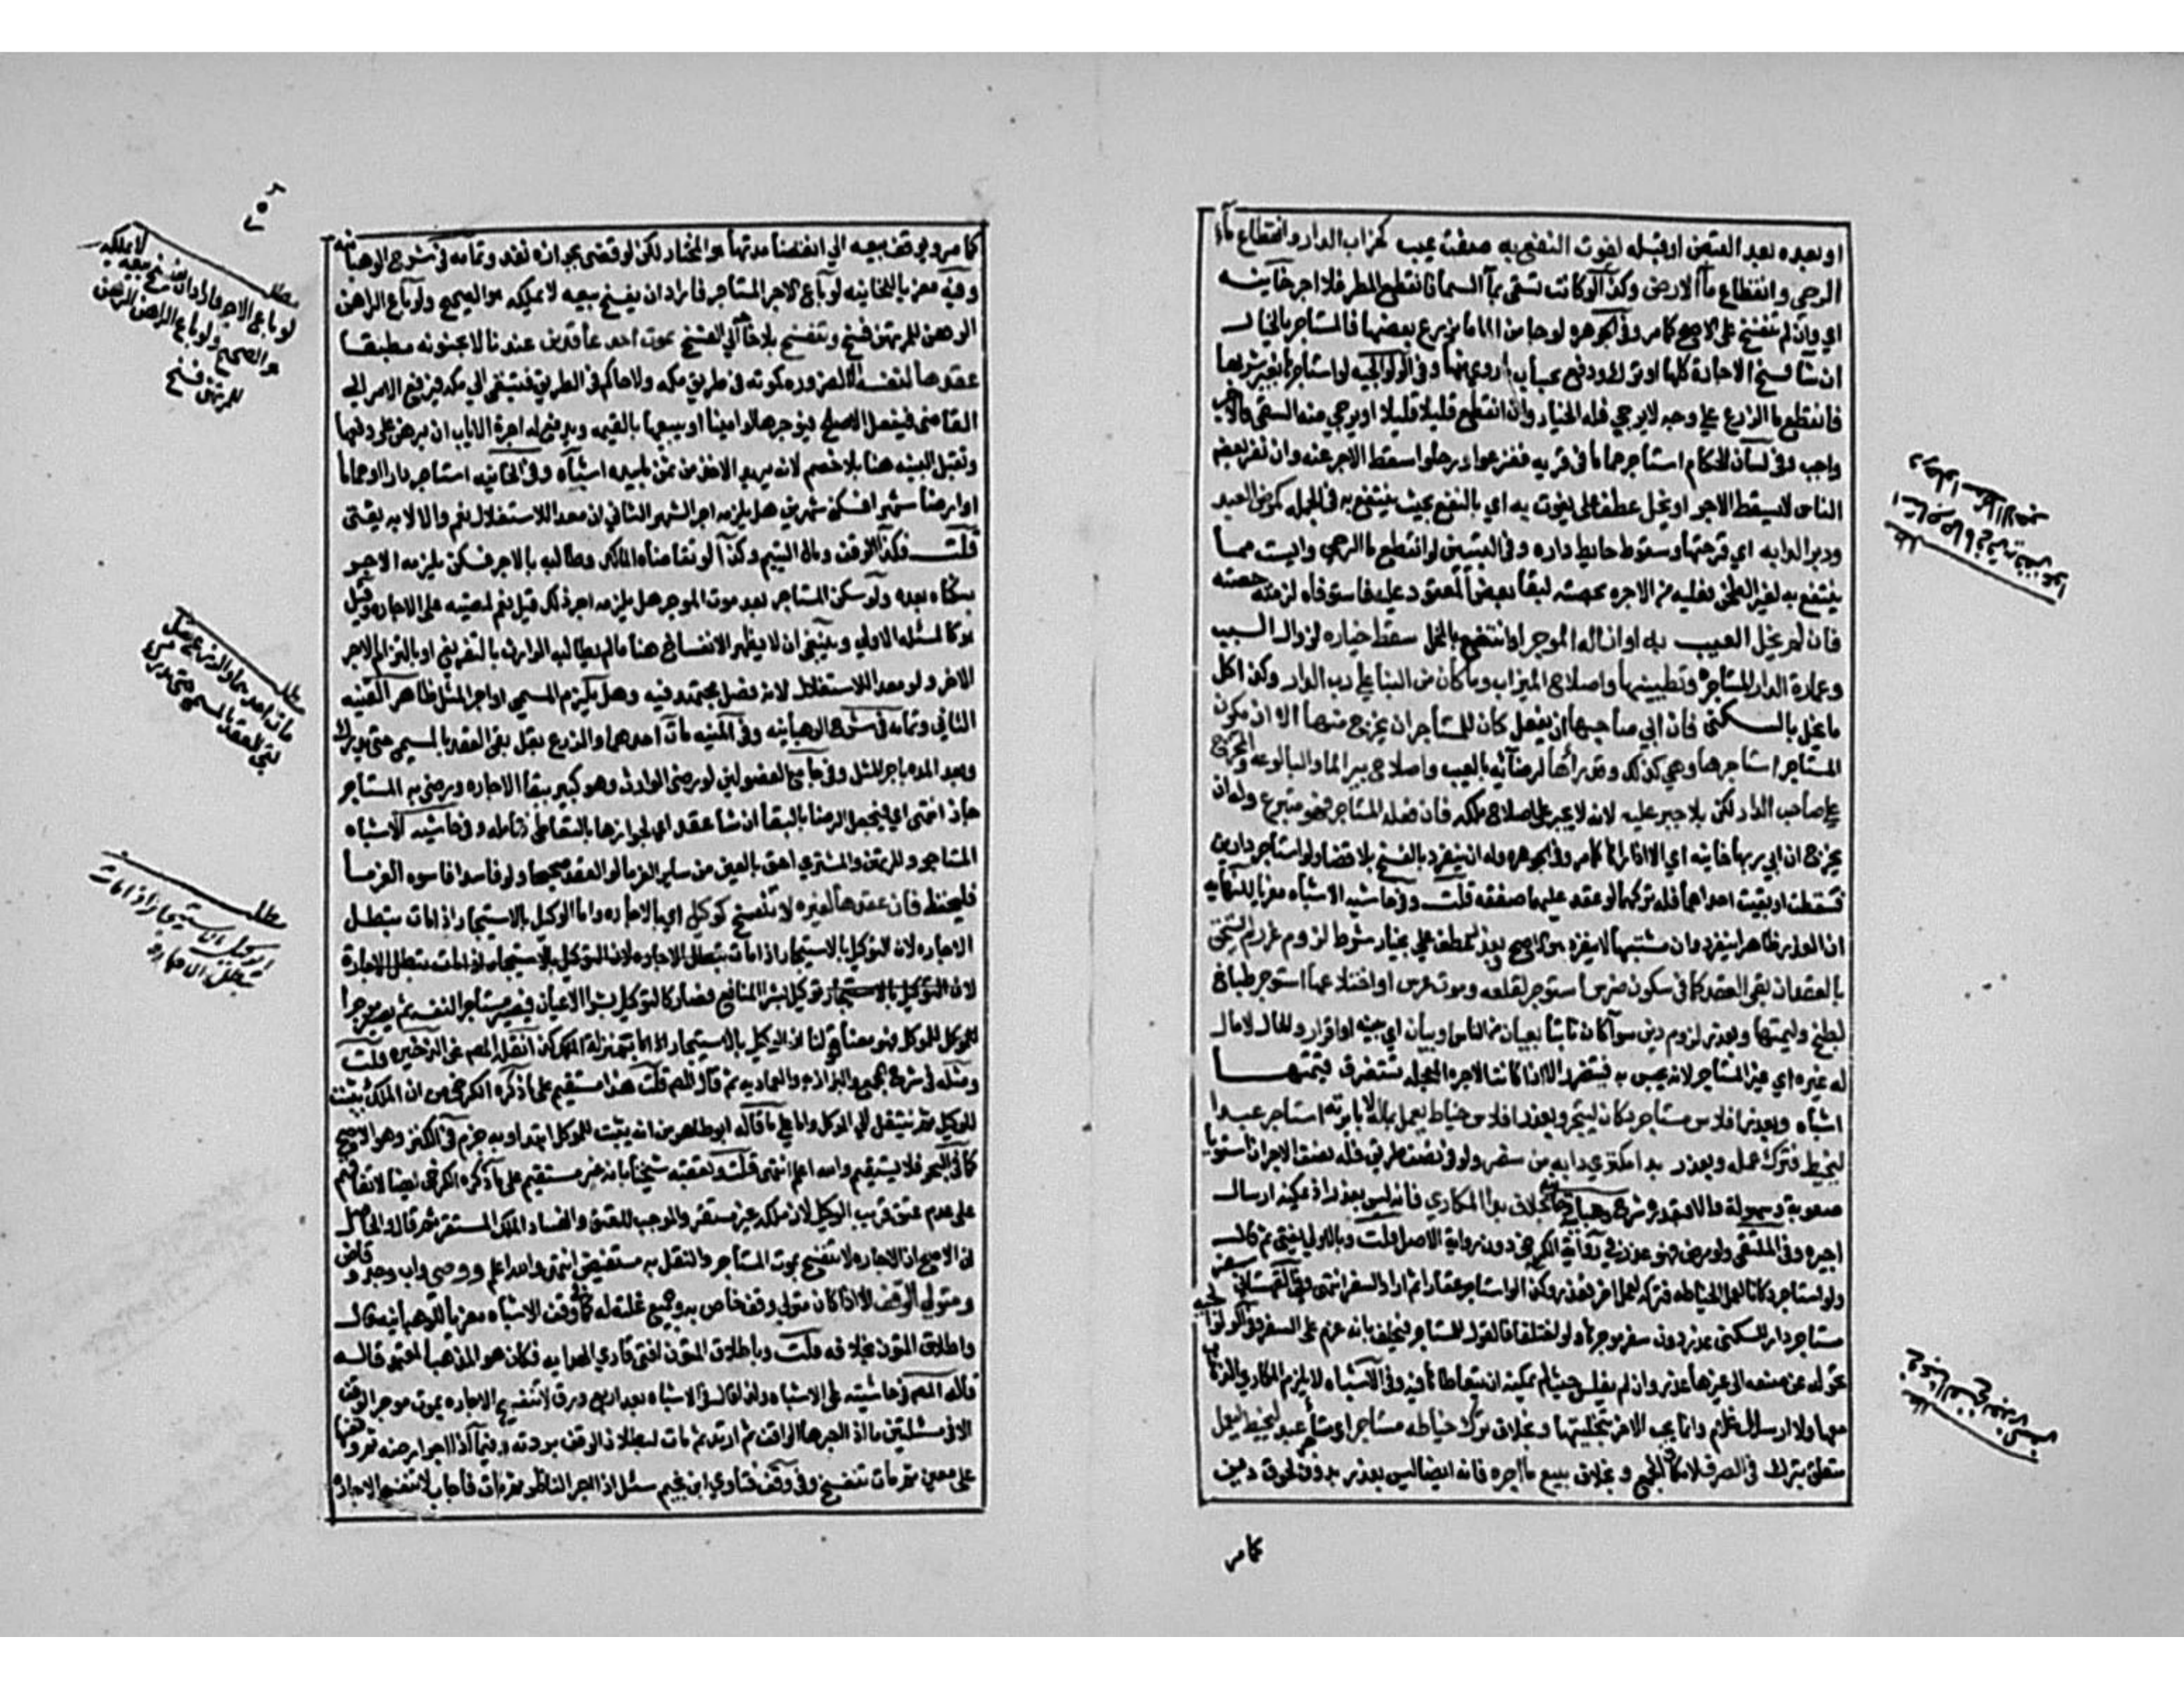 او بعده بعد القبض او قبله لفوت النفع به صفت عيب كخراب الدار وانقطاع ماء
الرحي وانقطاع ماء الارض وكذا لو كانت تسقى بماء السما فانقطع المطر فلا اجر خانيه
اي وان لم تنفسخ على الاصح كما مر وفي الجوهره لو جا من الما ما يزرع بعضها فالمستاجر بالخيار
ان شا فسخ الاجاره كلها او ترك ودفع بحساب ما روي منها وفي الولوالجيه لو استاجرها بغير شربها
فانقطع ما الزرع على وجه لا يرجى فله الخيار وان انقطع قليلا قليلا او يرجى منه السقى فالاجر
واجب وفي لسان الحكام استاجر حماما في قريه ففزعوا ورحلوا سقط الاجر عنه وان نفر بعض
الناس لا يسقط الاجر او يخل عطف على يفوت به اي بالنفع بحيث ينتفع به في الجمله كمرض العبد
ودبر الدابه اي قرحتها وسقوط حايط داره وفي التبيين لو انقطع ما الرحى والبيت مما
ينتفع به لغير الطحن فعليه من الاجره بحصته لبقا بعض المعقود عليه فاستوفاه لزمته حصته
فان لم يخل العيب به او ازاله الموجر او انتفع بالمخل سقط خياره لزوال السبب
وعمارة الدار المستاجره وتطيينها واصلاح الميزاب وما كان من البنا على رب الدار وكذا كل
ما يخل بالسكنى فان ابى صاحبها ان يفعل كان للمستاجر ان يخرج منها الا ان يكون
المستاجر استاجرها وهي كذلك وقد راها لرضائه بالعيب واصلاح بير الما والبالوعه والمخرج
على صاحب الدار لكن بلا جبر عليه لانه لا يجبر على اصلاح ملكه فان فعله المستاجر فهو متبرع وله ان
يخرج ان ابى ربها خانيه اي الا اذا راها كما مر وفي الجوهره وله ان ينفرد بالفسخ بلا قضا ولو استاجر دارين
فسقطت او بقيت احداهما فله تركهما لو عقد عليهما صفقه قلت وفي حاشيه الاشباه معزيا للنهايه
ان العذر ظاهرا ينفرد وان مشتبها لا ينفرد هو الاصح وبعذر عطف على بخيار شرط لزوم ضرر لم يستحق
بالعقد ان بقي العقد كما في سكون ضرس استوجر لقلعه وموت عرس او اختلاعها استوجر طباخ
لطبخ وليمتها وبعذر لزوم دين سوآ كان ثابتا بعيان من الناس او بيان اي بينه او اقرار والحال لا مال
له غيره اي غير المستاجر لانه يحبس به فيتضرر الا اذا كانت الاجره المعجله تستغرق قيمتها
اشباه وبعذر افلاس مستاجر دكان ليتجر وبعذر افلاس خياط يعمل بماله لا بابرته استاجر عبدا
ليخيط فترك عمله وبعذر بدا مكتري دابه من سفر ولو في نصف طريق فله نصف الاجر ان استويا
صعوبة وسهولة والا فبقدره شرح وهبانيه بخلاف بدا المكاري فانه ليس بعذر اذ يمكنه ارسال
اجيره وفي الملتقى ولو مرض فهو عذر في رواية الكرخي دون رواية الاصل قلت وبالاولى يفتى ثم قال
ولو استاجر دكانا لعمل الخياطه فتركه لعمل اخر فعذر وكذا لو استاجر عقارا ثم اراد السفر انتهى وفي القهستاني سفر
مستاجر دار للسكنى عذر دون سفر موجرها ولو اختلفا فالقول للمستاجر فيحلف بانه عزم على السفر وفي الولوالجيه
تحوله عن صنعه الى غيرها عذر وان لم يفلس حيث لم يمكنه ان يتعاطاها فيه وفي الاشباه لا يلزم المكاري الذهاب
معها ولا ارسال غلام وانما يجب الاجر بتخليتها وبخلاف ترك خياطه مستاجر او مستاجر عبد ليخيط ليعمل
متعلق بترك في الصرف لامكان الجمع وبخلاف بيع ما اجره فانه ايضا ليس بعذر بدون لحوق دين
كما مر
استاجر حماما في قرية ففزعوا
ورحلوا سقط الاجر عنه
كما مر ويوقف بيعه الى انقضا مدتها هو المختار لكن لو قضى بجوازه نفذ وتمامه في شرح الوهبانيه
وفيه معزيا للخانيه لو باع الاجر المستاجر فاراد ان يفسخ بيعه لا يملكه هو الصحيح ولو باع الراهن
الرهن للمرتهن فسخ وتنفسخ بلا حاجه الى الفسخ بموت احد عاقدين عندنا لا بجنونه مطبقا
عقدها لنفسه الا لضرورة كموته في طريق مكه ولا حاكم في الطريق فتبقى الى مكه فيرفع الامر الى
القاضي فيفعل الاصلح فيوجرها لو امينا او يبيعها بالقيمه ويدفع له اجرة الاياب ان برهن على دفعها
وتقبل البينه هنا بلا خصم لانه يريد الاخذ من ثمن ما بيده اشباه وفي الخانيه استاجر دارا او حماما
او ارضا شهرا فسكن شهرين هل يلزمه اجر الشهر الثاني ان معدا للاستغلال نعم والا لا به يفتى
قلت فكذا الوقف ومال اليتيم وكذا لو تقاضاه المالك وطالبه بالاجر فسكن يلزمه الاجر
بسكناه بعده ولو سكن المستاجر بعد موت الموجر هل يلزمه اجر ذلك قيل نعم لمضيه على الاجاره وقيل
هو كالمسئله الاولى وينبغي ان لا يظهر الانفساخ هنا ما لم يطالبه الوارث بالتفريغ او بالتزام الاجر
الاخر ولو معدا للاستغلال لانه فصل مجتهد فيه وهل يلزم المسمى او اجر المثل ظاهر القنيه
الثاني وتمامه في شرح الوهبانيه وفي المنيه مات احدهما والزرع بقل بقي العقد بالمسمى حتى يدرك
وبعد المده باجر المثل وفي جامع الفصولين لو رضي الوارث وهو كبير ببقا الاجاره ورضي به المستاجر
جاز انتهى اي فيجعل الرضا بالبقا انشا عقد اي لجوازها بالتعاطي فتامله وفي حاشيه الاشباه
المستاجر والمرتهن والمشتري احق بالعين من ساير الغرما لو العقد صحيحا ولو فاسدا فاسوه الغرما
فليحفظ فان عقدها لغيره لا تنفسخ كوكيل اي بالاجاره واما الوكيل بالاستيجار اذا مات تبطل
الاجاره لان التوكيل بالاستيجار اذا مات تبطل الاجاره لان التوكيل بالاستيجار اذا مات تبطل الاجارة
لان التوكيل بالاستيجار توكيل بشرا المنافع فصار كالتوكيل بشرا الاعيان فيصير مستاجرا لنفسه ثم يصير موجرا
للموكل فهو معنى قولنا ان الوكيل بالاستيجار بمنزلة المالك كذا نقله المص عن الذخيره قلت
ومثله في شرح المجمع والبزازيه والعماديه ثم قال المص قلت هذا مستقيم على ما ذكره الكرخي من ان الملك يثبت
للوكيل ثم ينتقل الى الموكل واما على ما قاله ابو طاهر من انه يثبت للموكل ابتداء وبه جزم في الكنز وهو الاصح
كما في البحر فلا يستقيم والله اعلم انتهى قلت وتعقبه شيخنا بانه غير مستقيم على ما ذكره الكرخي ايضا لاتفاقهم
على عدم عتق قريب الوكيل لان ملكه غير مستقر والموجب للعتق والفساد الملك المستقر ثم قال والحاصل
ان الاصح ان الاجاره لا تنفسخ بموت المستاجر والنقل به مستفيض انتهى والله اعلم ووصي واب وجد وقاض
ومتولي الوقف الا اذا كان متولي وقف خاص به وجميع غلته له كما في وقف الاشباه معزيا للوهبانيه قال
واطلاق المتون بخلافه قلت وباطلاق المتون افتى قاري الهدايه فكان هو المذهب المعتمد قاله
قاله المص في حاشيته على الاشباه ولذا قال في الاشباه بعد اربع ورق لا تنفسخ الاجاره بموت موجر الوقف
الا في مسئلتين ما اذا اجرها الواقف ثم ارتد ثم مات لبطلان الوقف بردته وفيما اذا اجر ارضه ثم وقفها
على معين ثم مات تنفسخ وفي وقف فتاوي ابن نجيم سئل اذا اجر الناظر ثم مات فاجاب لا تنفسخ الاجارة
مطلب
لو باع الاجر فاراد ان يفسخ بيعه لا يملكه
هو الصحيح ولو باع الراهن الرهن
للمرتهن فسخ
مطلب
مات احدهما والزرع بقل
بقي العقد بالمسمى حتى يدرك
مطلب
الوكيل بالاستيجار اذا مات
تبطل الاجارة